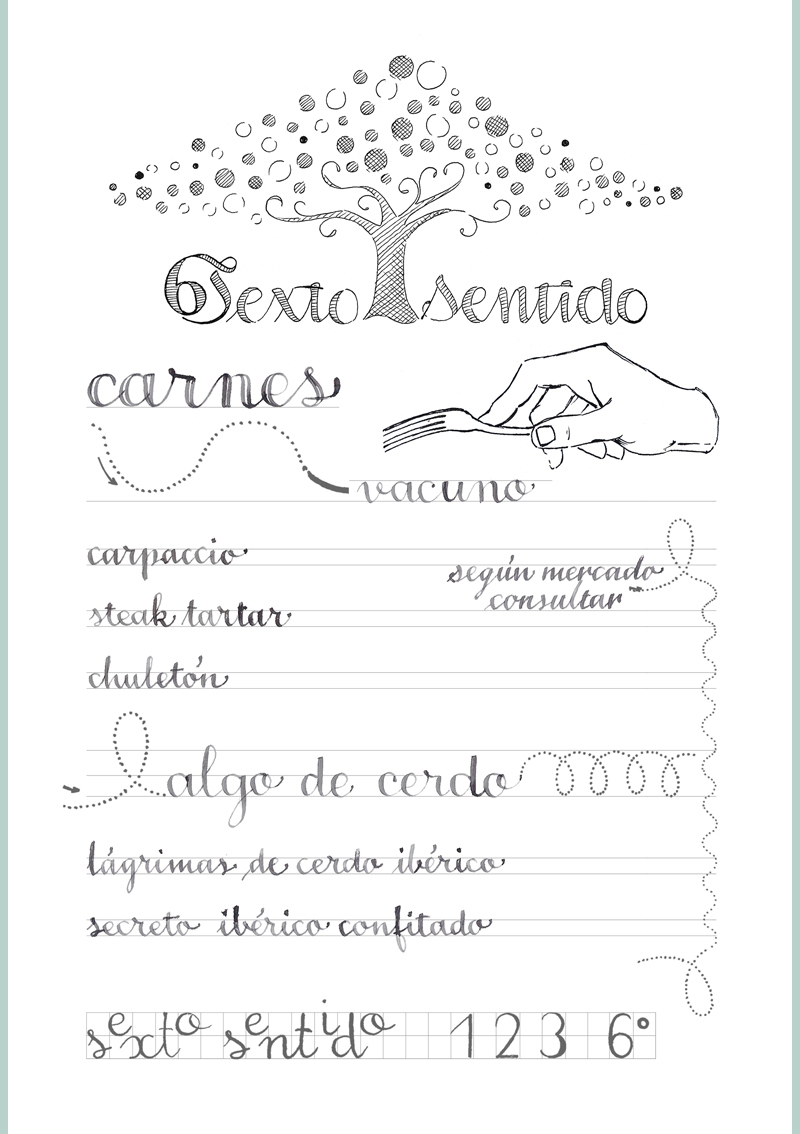 6 Sexto sentido
carnes
vacuno
carpaccio
según mercado
consultar
steak tartar
chuletón
algo de cerdo
lágrimas de cerdo ibérico
secreto ibérico confitado
sexto sentido 1 2 3 6º